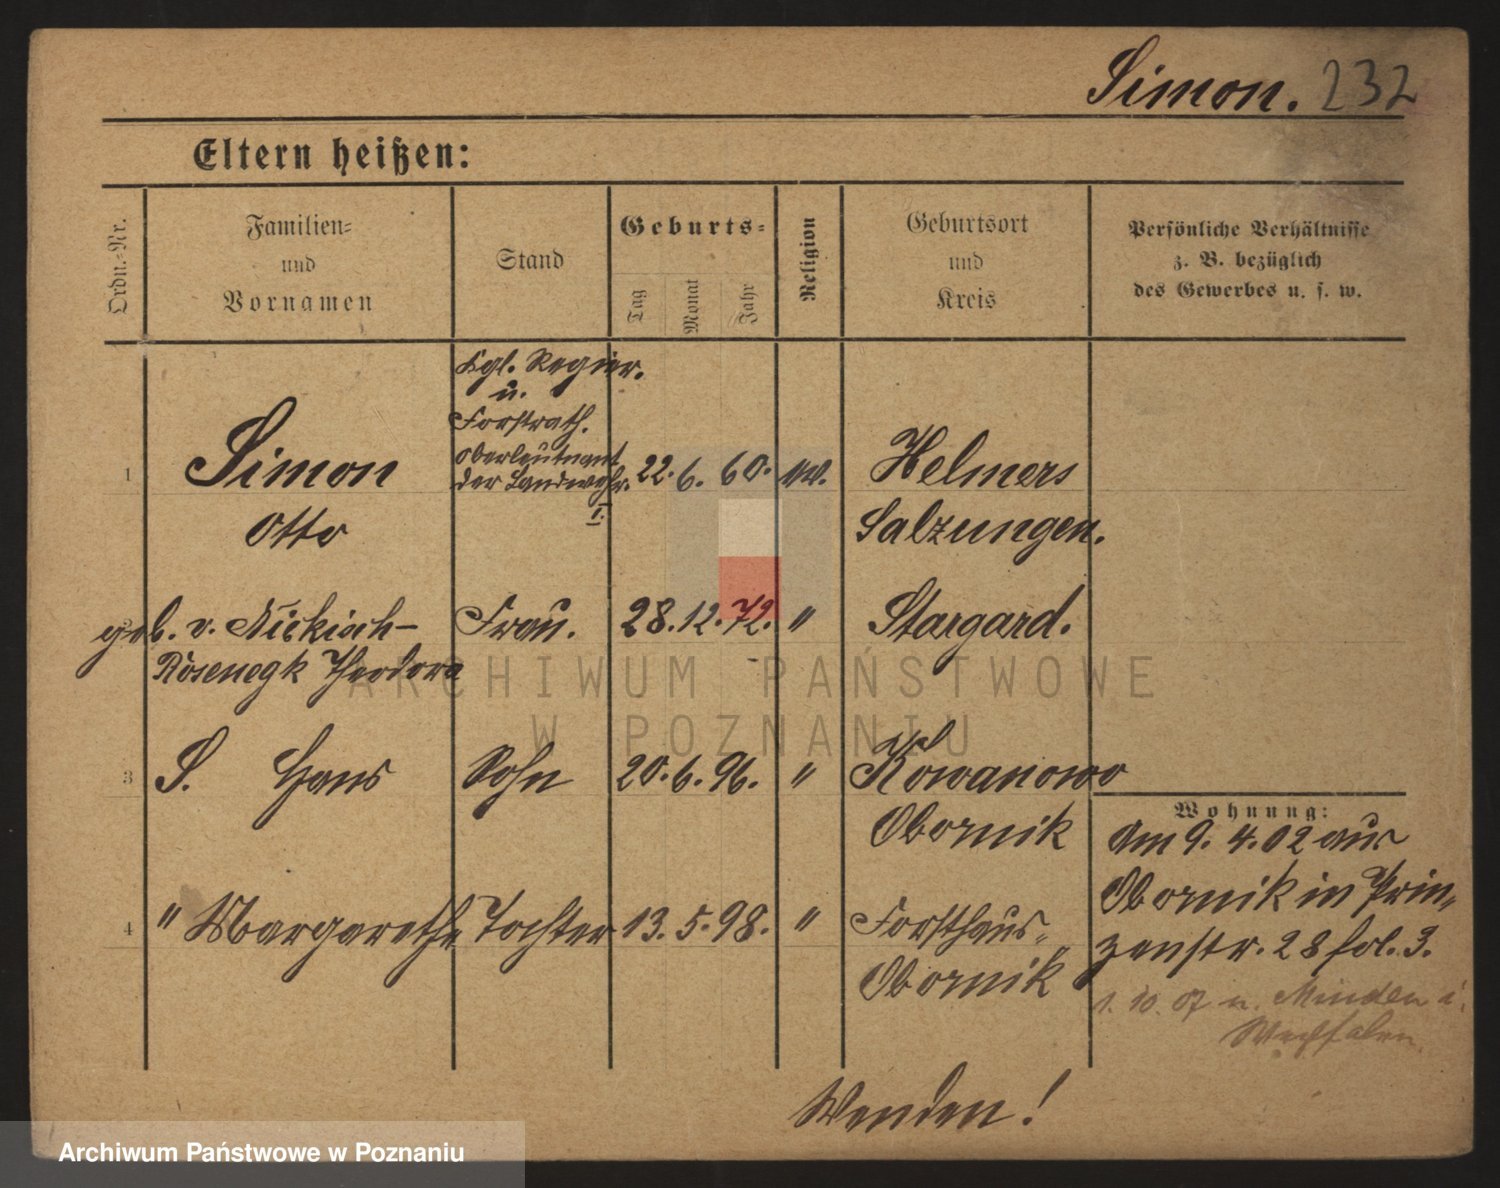 Simon. 232
Eltern heißen:
Ordn.-Nr.
Familien-
und
Vornamen
Stand
Geburts-
Tag
Monat
Jahr
Religion
Geburtsort
und
Kreis
Persönliche Verhältnisse
z. B. bezüglich
des Gewerbes u. s. w.
Kgl. Regier.
u.
Forstrath.
Oberleutnant
der Landwehr.
I.
1 Simon 22. 6. 60. ev. Helmers
Otto Salzungen.
geb. v. Nickisch- Frau. 28. 12. 72. " Stargard.
Rosenegk Theodora
3 S. Hans Sohn 20. 6. 96. " Kowanowo
Obornik
4 " Margarethe Tochter 13. 5. 98. " Forsthaus-
Obornik
Wohnung:
Am 9. 4. 02 aus
Obornik in Prin-
zenstr. 28 fol. 3.
1. 10. 07 n. Minden i.
Westfalen.
Wenden!
ARCHIWUM PAŃSTWOWE
W POZNANIU
Archiwum Państwowe w Poznaniu